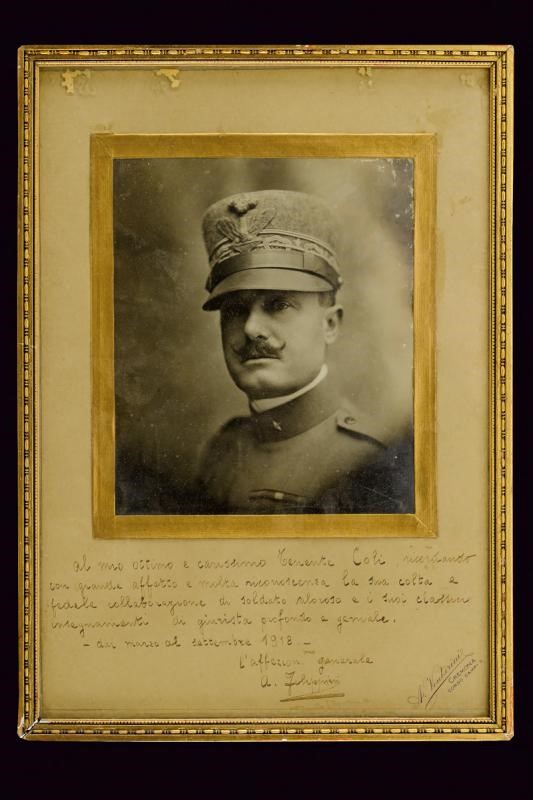 Al mio ottimo e carissimo Tenente Coli, ricordando
con grande affetto e molta riconoscenza la sua colta e
fedele collaborazione di soldato valoroso e i suoi classici
insegnamenti di giurista profondo e geniale.
- dal marzo al settembre 1918. -
l'affezion.mo generale
A. Filippini
Cremona